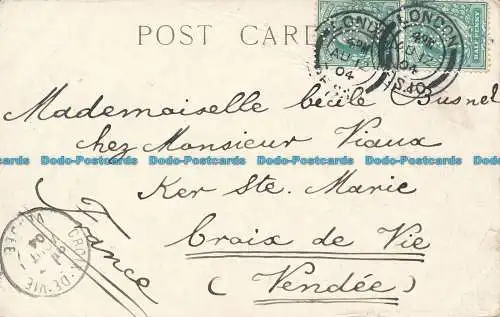 POST CARD
LONDON
AU 17
04
LONDON
04
Mademoiselle Cécile Busnel
chez Monsieur Viaux
Dodo-Postcards Dodo-Postcards Dodo-Postcards Dodo-Postcards Dodo-Postcards
Ker Ste. Marie
Croix de Vie
(Vendée)
France
CROIX-DE-VIE
VENDÉE
04